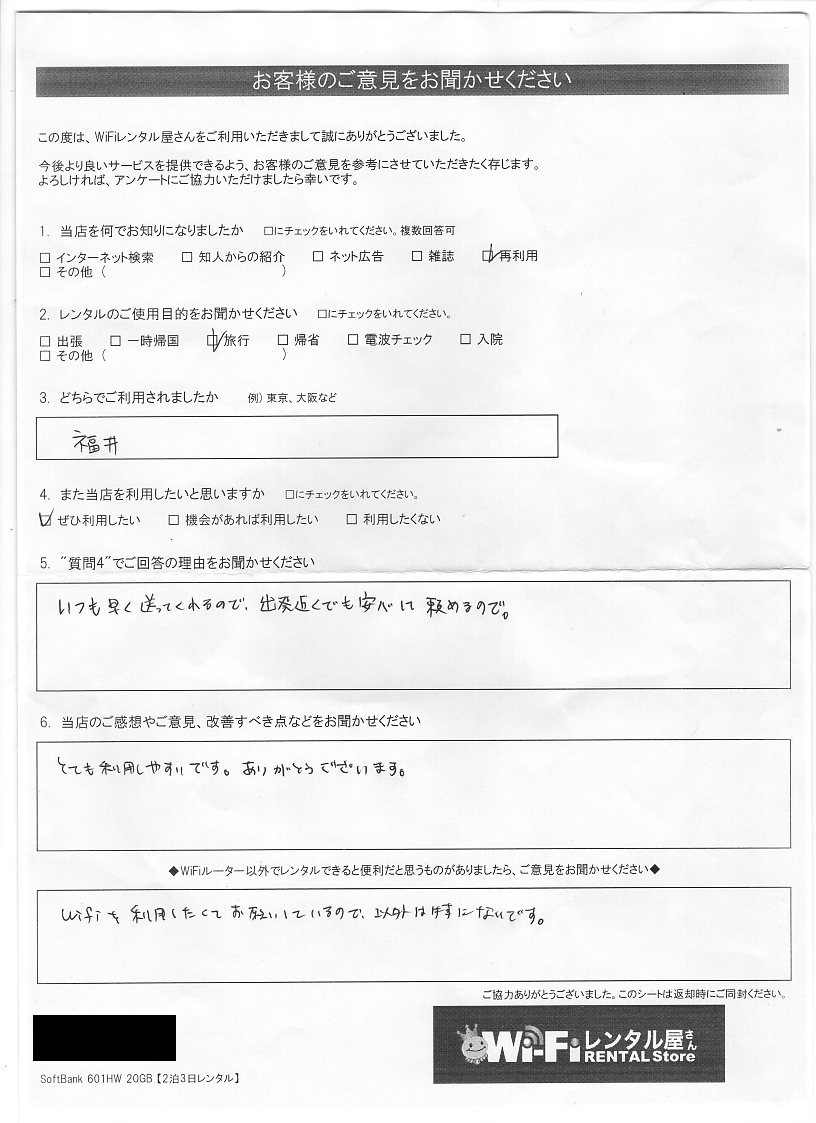 お客様のご意見をお聞かせください
この度は、WiFiレンタル屋さんをご利用いただきまして誠にありがとうございました。
今後より良いサービスを提供できるよう、お客様のご意見を参考にさせていただきたく存じます。
よろしければ、アンケートにご協力いただけましたら幸いです。
1. 当店を何でお知りになりましたか □にチェックをいれてください。複数回答可
□ インターネット検索 □ 知人からの紹介 □ ネット広告 □ 雑誌 ☑ 再利用
□ その他 ( )
2. レンタルのご使用目的をお聞かせください □にチェックをいれてください。
□ 出張 □ 一時帰国 ☑ 旅行 □ 帰省 □ 電波チェック □ 入院
□ その他 ( )
3. どちらでご利用されましたか 例) 東京、大阪など
福井
4. また当店を利用したいと思いますか □にチェックをいれてください。
☑ ぜひ利用したい □ 機会があれば利用したい □ 利用したくない
5. "質問4"でご回答の理由をお聞かせください
いつも早く送ってくれるので、出発近くでも安心して頼めるので。
6. 当店のご感想やご意見、改善すべき点などをお聞かせください
とても利用しやすいです。ありがとうございます。
◆WiFiルーター以外でレンタルできると便利だと思うものがありましたら、ご意見をお聞かせください◆
Wifiを利用したくてお願いしているので、以外は特にないです。
ご協力ありがとうございました。このシートは返却時にご同封ください。
Wi-Fiレンタル屋さん
RENTAL Store
SoftBank 601HW 20GB【2泊3日レンタル】